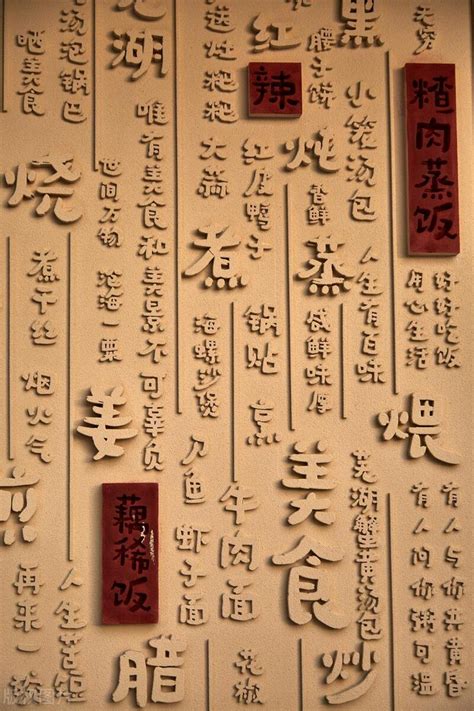 无穷
糌肉蒸饭
好好吃饭
用心生活
煨
有人与你共黄昏
有人问你粥可温
黑
小笼汤包
人生有百味
芜湖蟹黄汤包
炒
腰子饼
炖
香鲜
蒸
咸鲜味厚
美食
红
辣
红皮鸭子
锅贴
烹
牛肉面
花椒
送灶粑粑
大蒜
煮
海螺沙煲
刀鱼
虾子面
芜湖
唯有美食和美景不可辜负
世间万物
沧海一粟
姜
藕稀饭
腊
汤泡锅巴
晒美食
烧
煮干丝
烟火气
煎
人生苦短
再来一